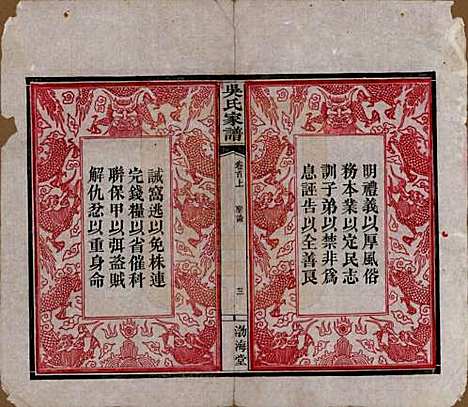 明禮義以厚風俗
務本業以定民志
訓子弟以禁非爲
息誣告以全善良
吳氏家譜
卷首上
聖諭
三
渤海堂
誡窩逃以免株連
完錢糧以省催科
聯保甲以弭盜賊
解仇忿以重身命